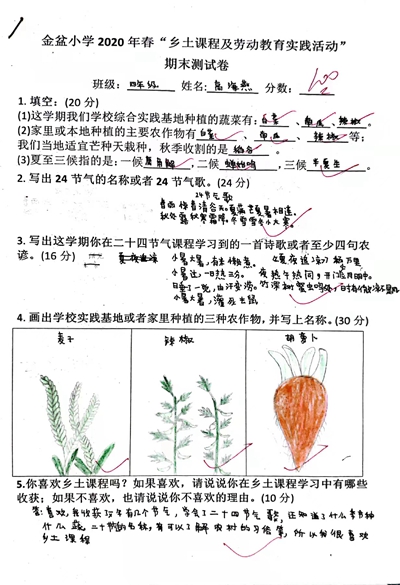 金盆小学 2020 年春“乡土课程及劳动教育实践活动”
期末测试卷
班级: 四年级 姓名: 分数: 100
1. 填空: (20 分)
(1)这学期我们学校综合实践基地种植的蔬菜有: 、 、辣椒。
(2)家里或本地种植的主要农作物有 、 、辣椒 等;
我们当地适宜芒种天栽种，秋季收割的是 。
(3)夏至三候指的是: 一候鹿角解, 二候 蝉始鸣, 三候 半夏生。
2. 写出 24 节气的名称或者 24 节气歌。(24 分)
24节气歌
春雨惊春清谷天。夏满芒夏暑相连。
秋处露秋寒霜降。冬雪雪冬小大寒。
3. 写出这学期你在二十四节气课程学习到的一首诗歌或者至少四句农
谚。(16 分)
小暑大暑,
小暑过,一日热三分。 夜热午热同,开门月明中。
竹深树密虫鸣处,时有微凉不是风
小暑大暑,
4. 画出学校实践基地或者家里种植的三种农作物，并写上名称。(30 分)
麦子 辣椒 胡萝卜
5.你喜欢乡土课程吗？如果喜欢，请说说你在乡土课程学习中有哪些
收获；如果不喜欢，也请说说你不喜欢的理由。(10 分)
答:喜欢,我收获 节气,学会了二十四节气歌,还知道了什么季节种
什么蔬 二十节的名称,有可以了解农村的习俗等,所以我很喜欢
乡土课程